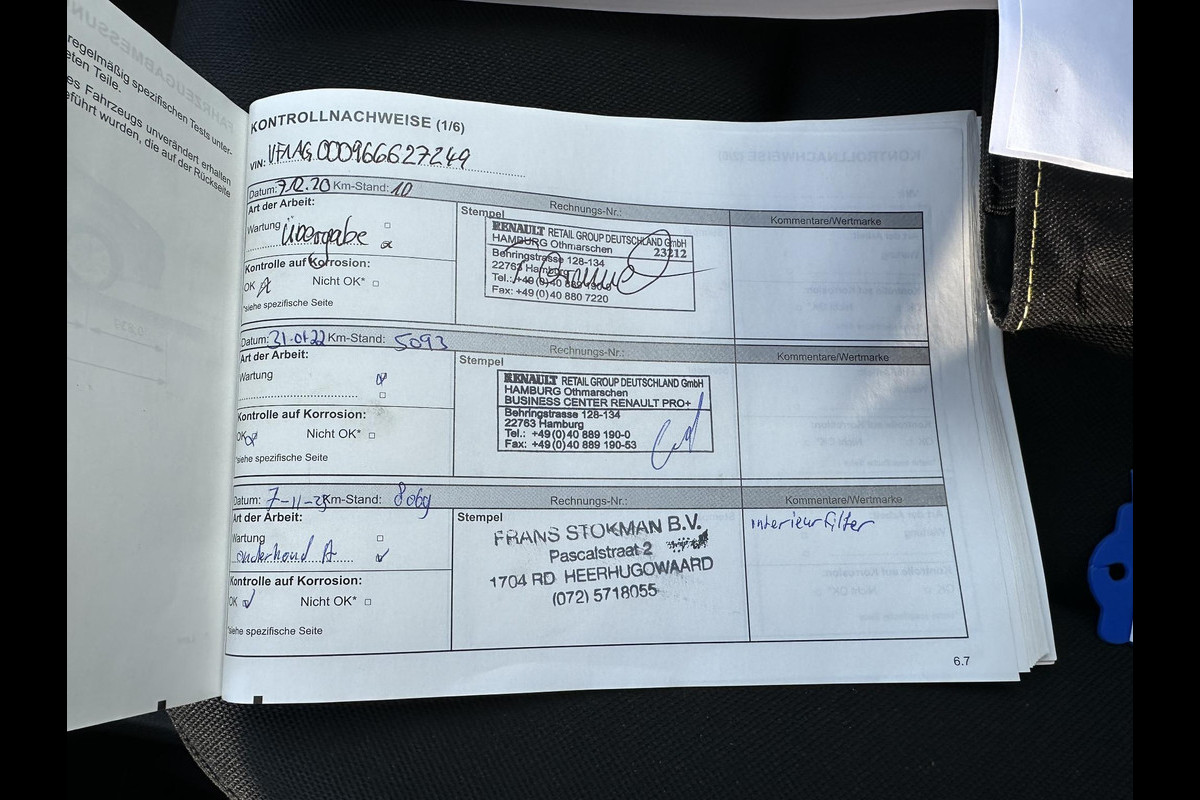 regelmäßig spezifischen Tests unter-
eten Teile.
es Fahrzeugs unverändert erhalten
eführt wurden, die auf der Rückseite
KONTROLLNACHWEISE (1/6)
VIN: VF1AG000966627249
Datum: 7.12.20 Km-Stand: 10
Art der Arbeit:
Wartung
Übergabe
Kontrolle auf Korrosion:
OK Nicht OK*
*siehe spezifische Seite
Rechnungs-Nr.:
Stempel
RENAULT RETAIL GROUP DEUTSCHLAND GmbH
HAMBURG Othmarschen 23212
Behringstrasse 128-134
22763 Hamburg
Tel.: +49 (0) 40 889 190-0
Fax: +49 (0) 40 880 7220
Kommentare/Wertmarke
Datum: 31.01.22 Km-Stand: 5093
Art der Arbeit:
Wartung
Kontrolle auf Korrosion:
OK Nicht OK*
*siehe spezifische Seite
Rechnungs-Nr.:
Stempel
RENAULT RETAIL GROUP DEUTSCHLAND GmbH
HAMBURG Othmarschen
BUSINESS CENTER RENAULT PRO+
Behringstrasse 128-134
22763 Hamburg
Tel.: +49 (0) 40 889 190-0
Fax: +49 (0) 40 889 190-53
Kommentare/Wertmarke
Datum: 7-11-23 Km-Stand: 8069
Art der Arbeit:
Wartung
onderhoud A
Kontrolle auf Korrosion:
OK Nicht OK*
*siehe spezifische Seite
Rechnungs-Nr.:
Stempel
FRANS STOKMAN B.V.
Pascalstraat 2
1704 RD HEERHUGOWAARD
(072) 5718055
Kommentare/Wertmarke
interieurfilter
6.7